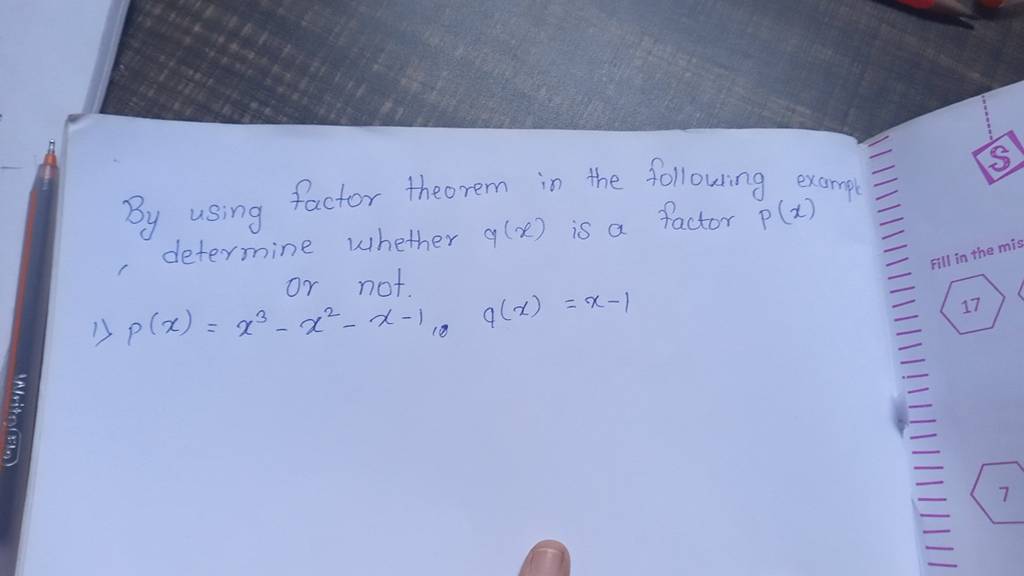 By using factor theorem in the following exampl
, determine whether q(x) is a factor p(x)
or not.
1) p(x) = x³ - x² - x - 1, q(x) = x - 1
S
Fill in the mis
17
7